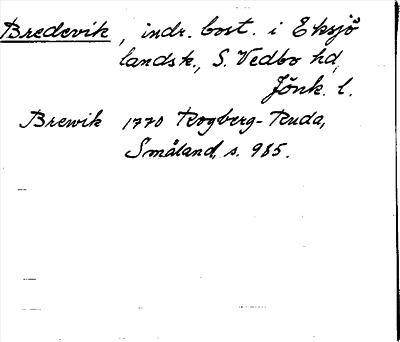 Bredevik, indr. bost. i Eksjö
landsk., S. Vedbo hd,
Jönk. l.
Brewik 1770 Rogberg-Ruda,
Småland, s. 985.